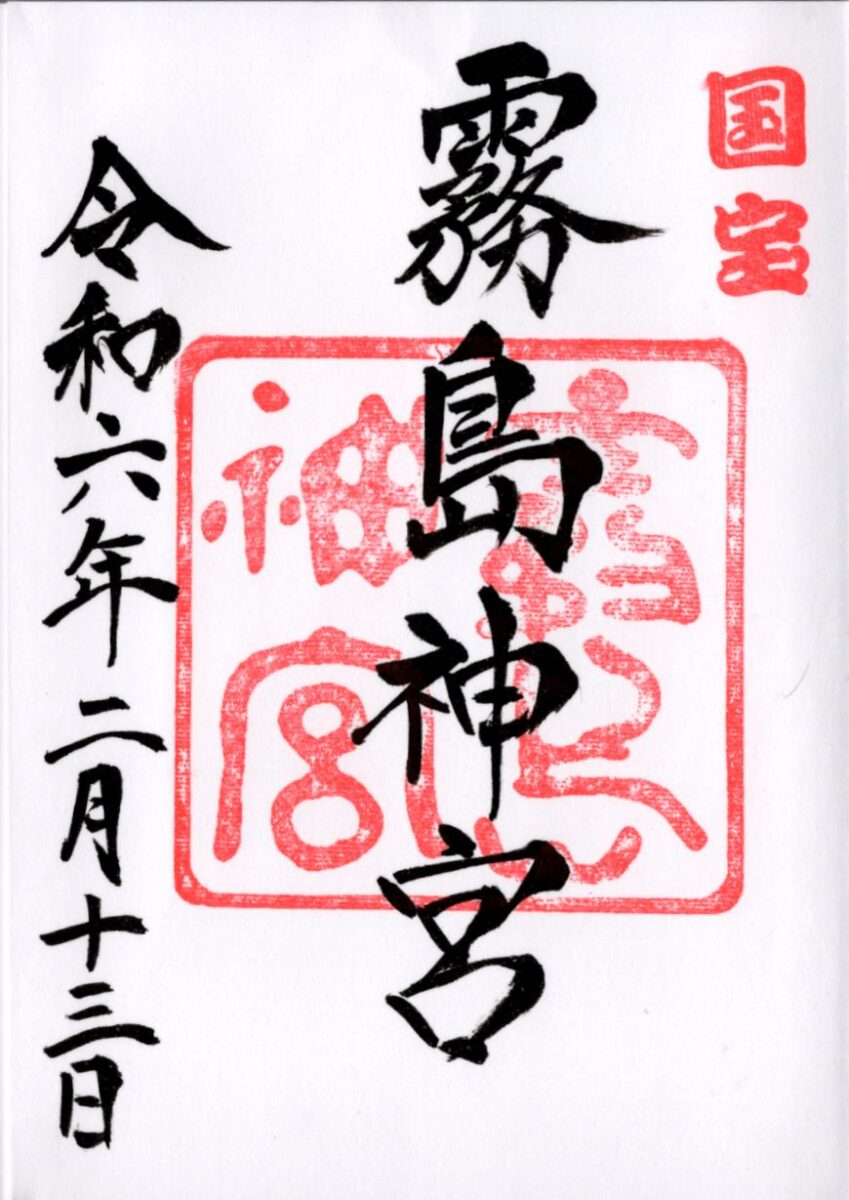 国宝
霧島神宮
霧島
神宮
令和六年二月十三日